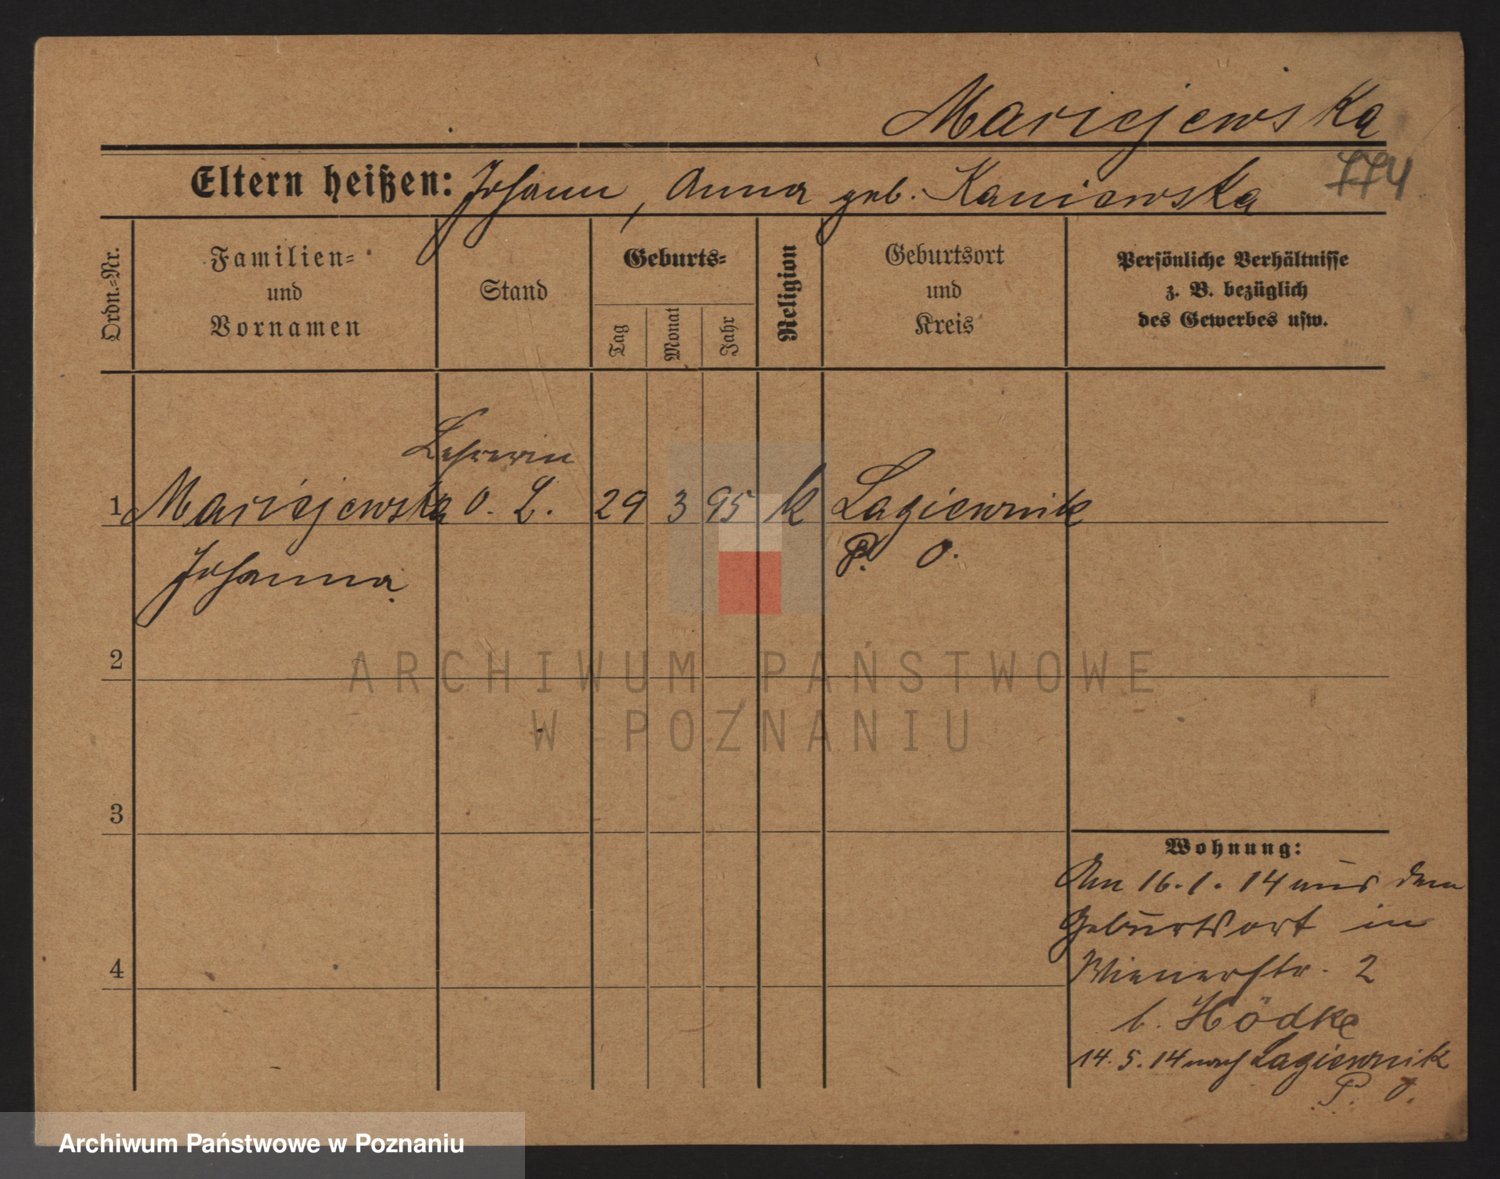 Mariejewska
774
Eltern heißen: Johann, Anna geb. Kaniewska
Ordn.-Nr.
Familien- und Vornamen
Stand
Geburts-
Tag
Monat
Jahr
Religion
Geburtsort und Kreis
Persönliche Verhältnisse z. B. bezüglich des Gewerbes usw.
Lehrerin
1 Mariejewska o. L. 29 3 95 k Lagiewnik
Johanna P. O.
2
3
4
Wohnung:
Am 16.1.14 aus dem
Geburtsort in
Wienerstr. 2
b. Hödke
14.5.14 nach Lagiewnik
P. O.
ARCHIWUM PAŃSTWOWE
W POZNANIU
Archiwum Państwowe w Poznaniu